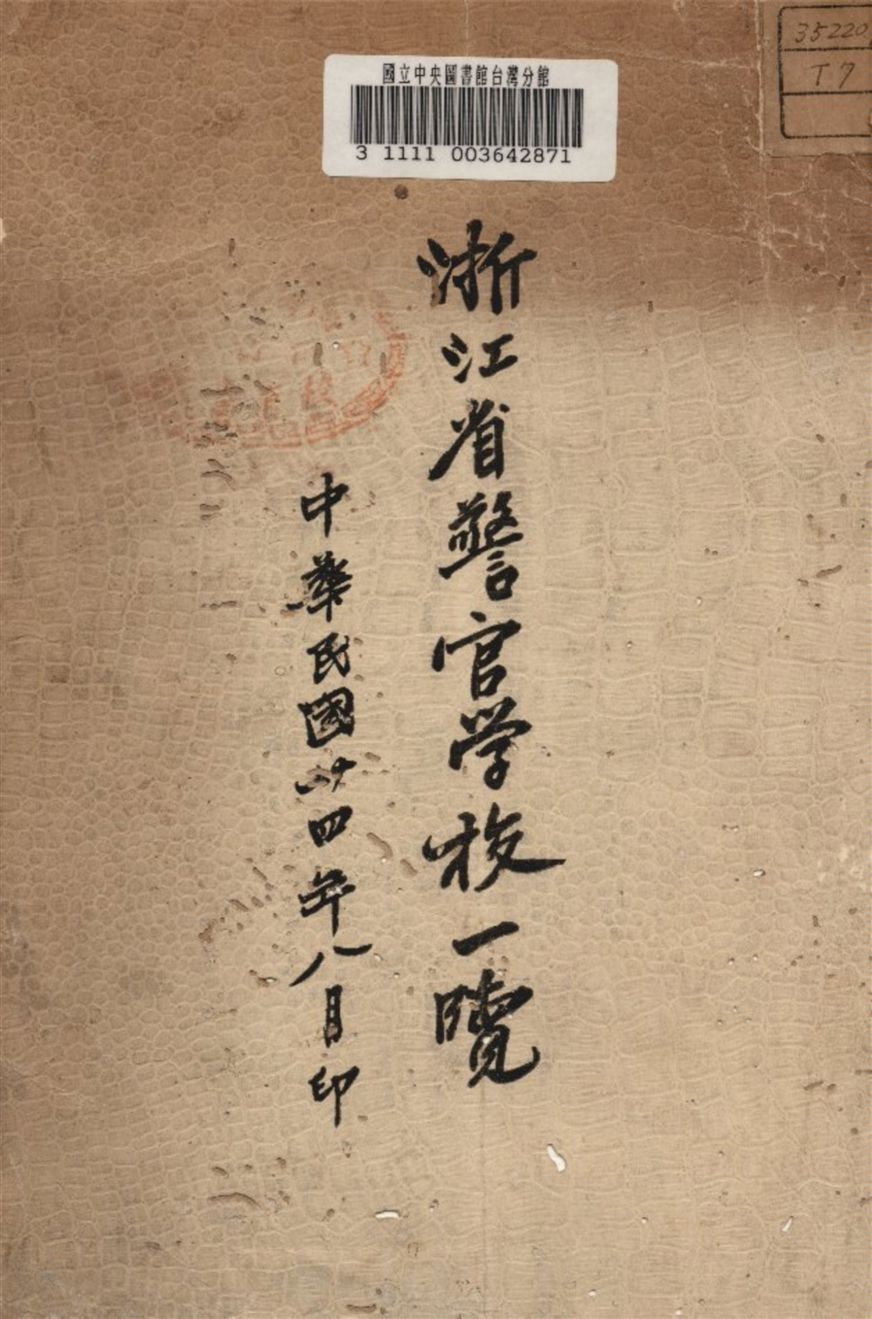 國立中央圖書館台灣分館
3 1111 003642871
35220
T7
浙江省警官学校一覽
中華民國廿四年八月印